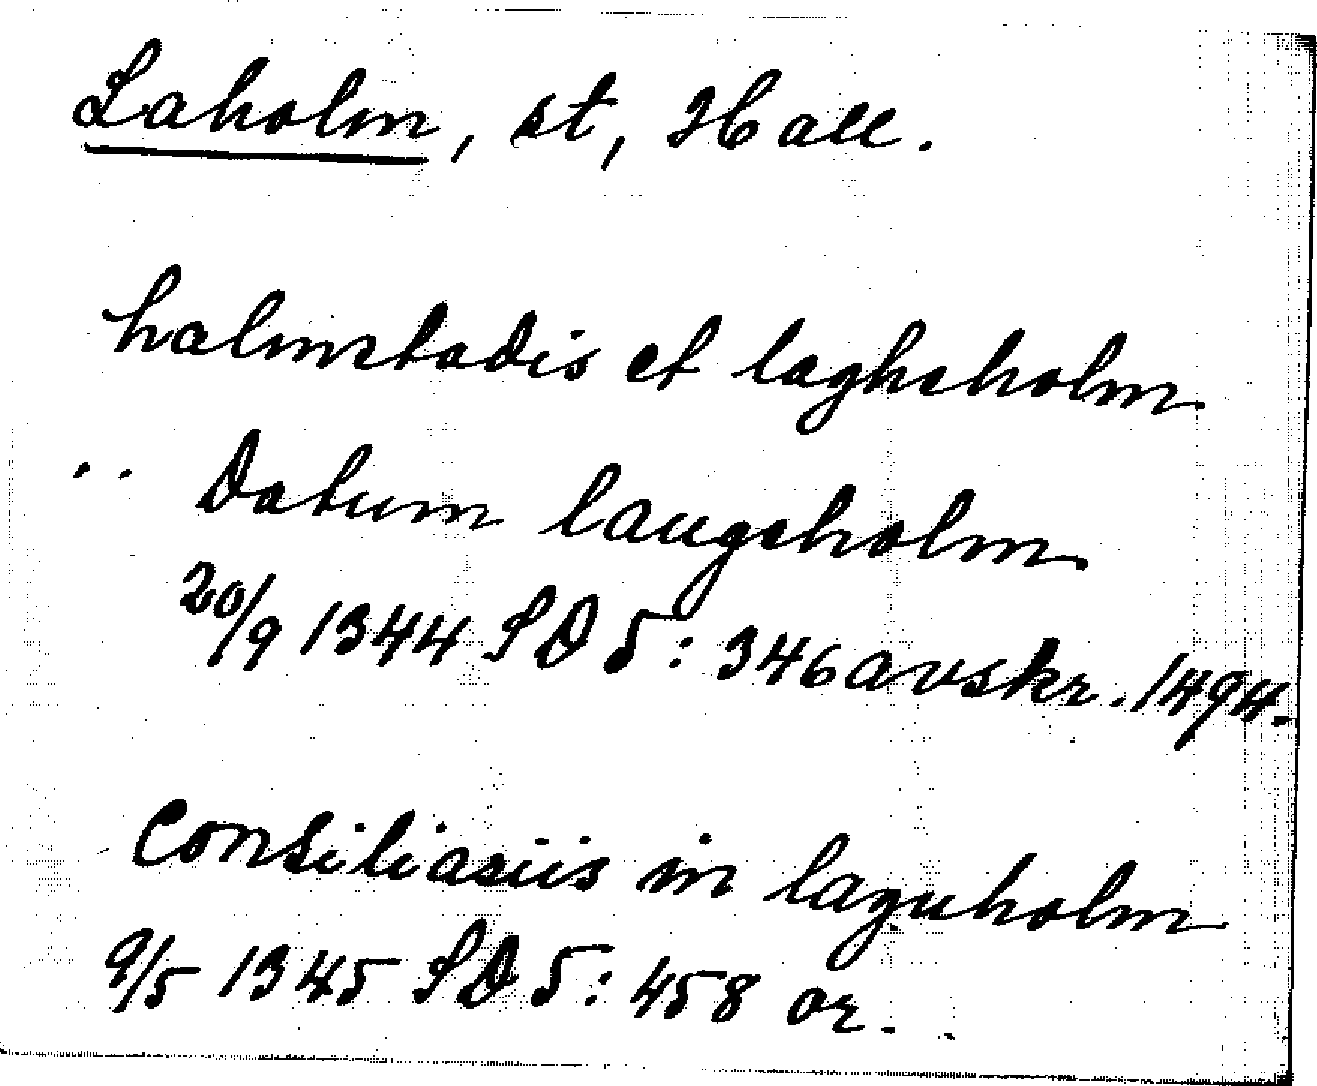 Laholm, st, Hall.
halmstadis et lagheholm
.. Datum laugeholm
20/9 1344 SD 5: 346 avskr. 1494.
Consiliariis in laguholm
9/5 1345 SD 5: 458 or.